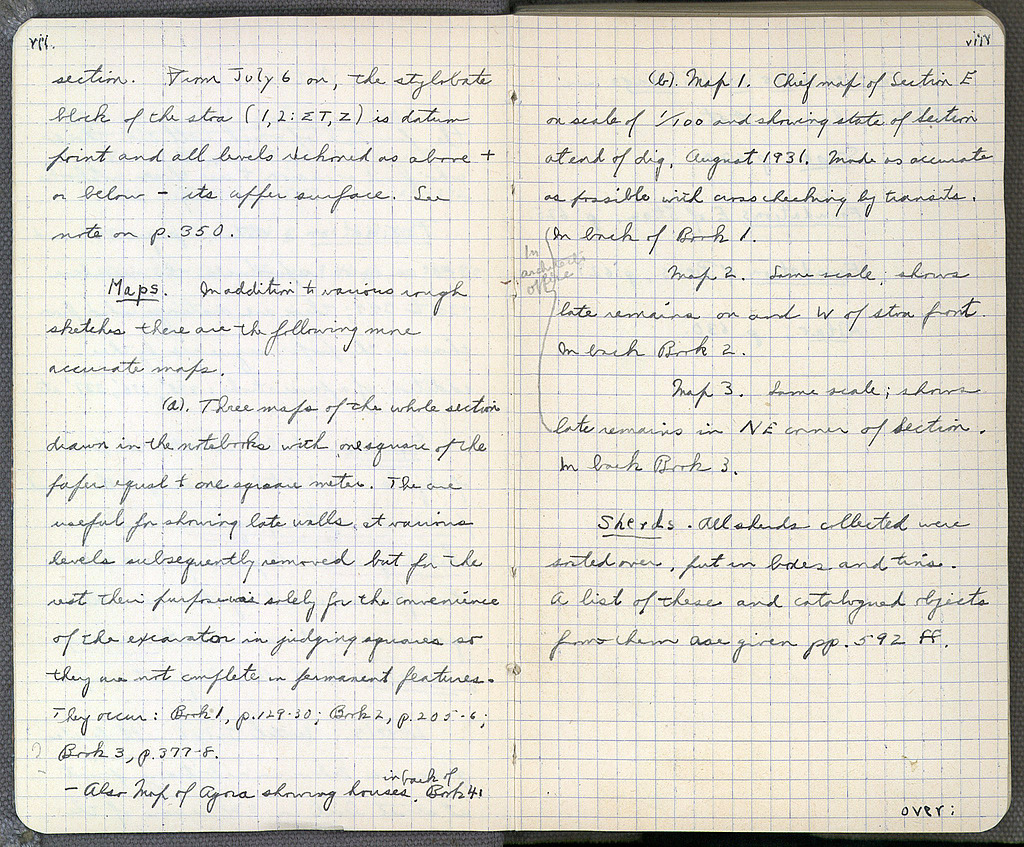 vii.
section. From July 6 on, the stylobate
block of the stoa (1,2: ΣΤ, Ζ) is datum
point and all levels reckoned as above +
or below - its upper surface. See
note on p. 350.
Maps. In addition to various rough
sketches there are the following more
accurate maps.
(a). Three maps of the whole section
drawn in the notebooks with one square of the
paper equal to one square meter. The are
useful for showing late walls at various
levels subsequently removed but for the
rest their purpose was solely for the convenience
of the excavator in judging squares so
they are not complete in permanent features.
They occur: Book 1, p. 129-30; Book 2, p. 205-6;
Book 3, p. 377-8.
- Also Map of Agora showing houses, in back of Book 4!
viii
(b). Map 1. Chief map of Section E
on scale of 1/100 and showing state of Section
at end of dig, August 1931. Made as accurate
as possible with cross checking by transits.
In back of Book 1.
In
architects
office
Map 2. Same scale; shows
late remains on and W of stoa front.
In back Book 2.
Map 3. Same scale; shows
late remains in NE corner of Section.
In back Book 3.
Sherds. All sherds collected were
sorted over, put in boxes and tins.
A list of these and catalogued objects
from them are given pp. 592 ff.
over: